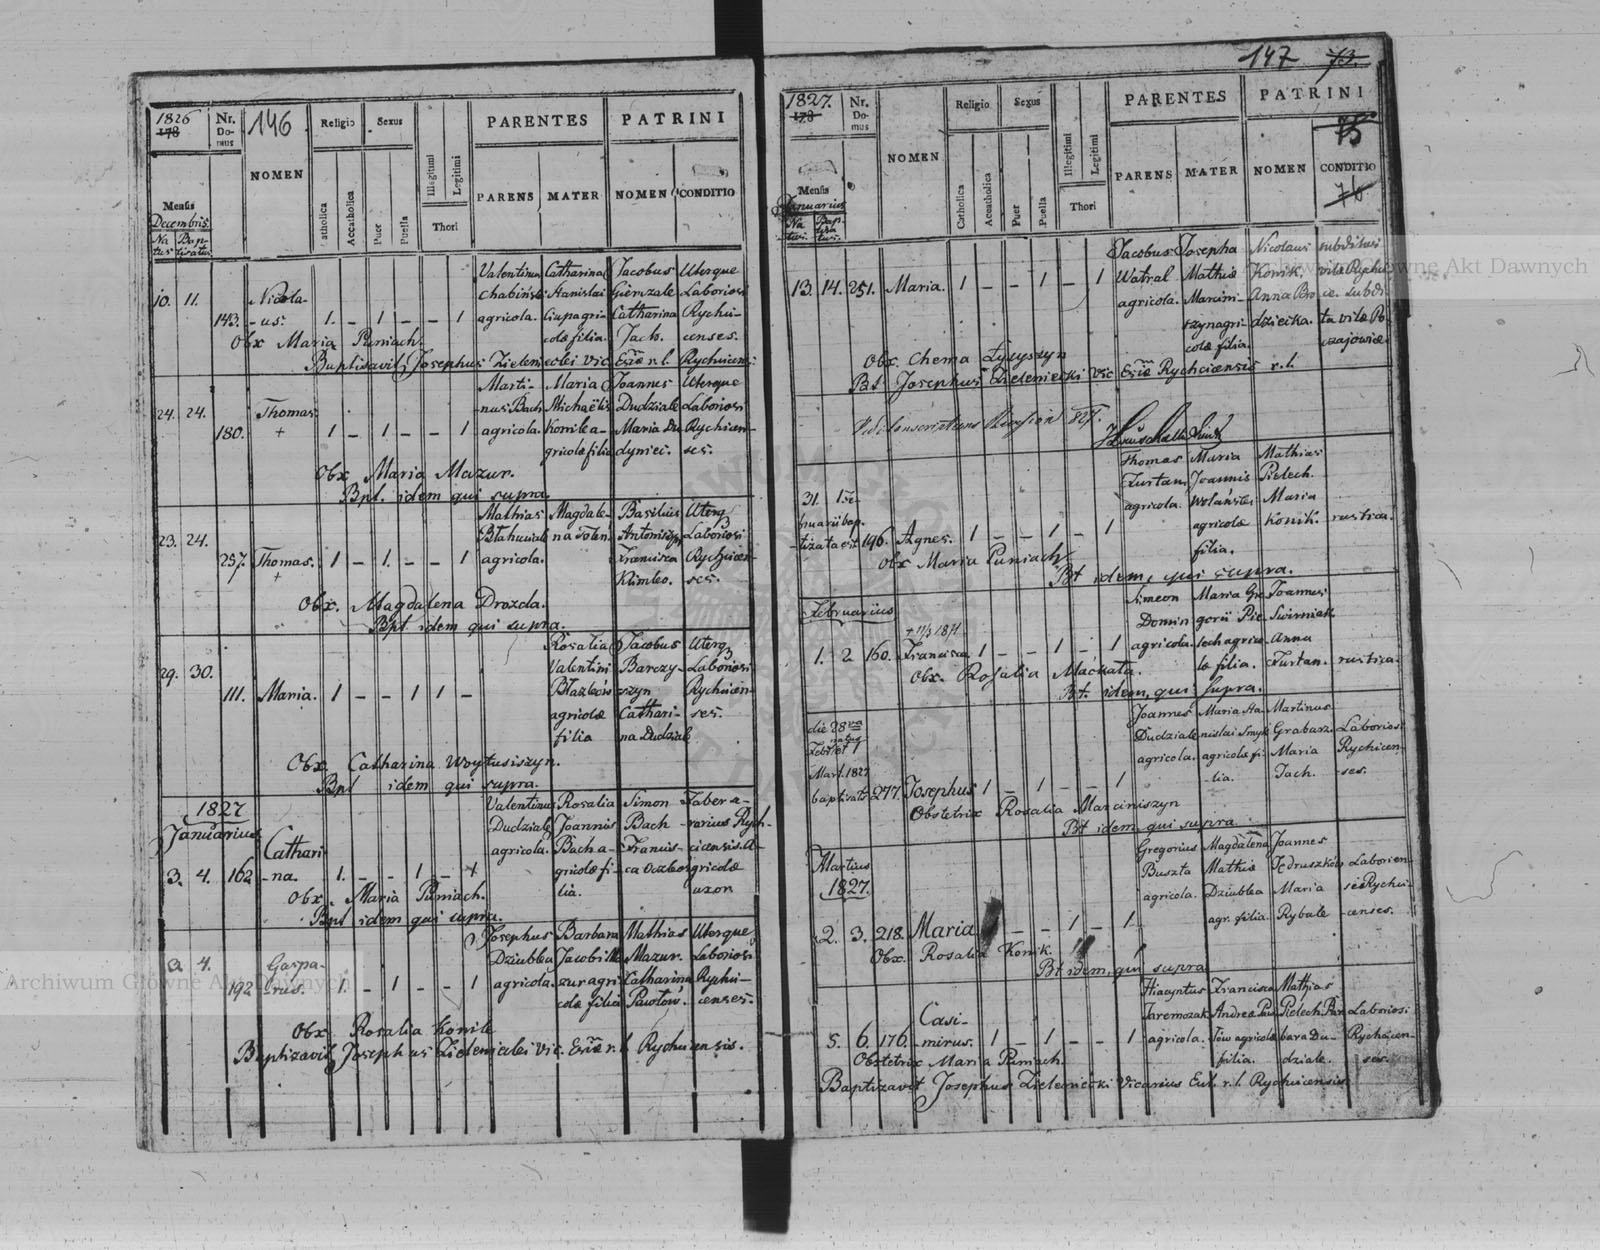 146
1826
178
Nr. Domus
NOMEN
Religio
Sexus
Catholica
Accatholica
Puer
Puella
Illegitimi
Legitimi
Thori
PARENTES
PARENS
MATER
PATRINI
NOMEN
CONDITIO
Mensis
Decembris.
Natus
Baptisatus
10. 11. 143. Nicola-us. 1. - 1 - - 1
Valentinus Chabiński agricola.
Catharina Stanislai Ciupa agricolæ filia.
Jacobus
Catharina Jach.
Uterque Laboriosi Rychcicenses.
Obx Maria Puniach.
Baptisavit Josephus Zieleniecki Vic. Ecclæ r. l. Rychcicensis
24. 24. 180. Thomas + 1 - 1 - - 1
Martinus Bach agricola.
Maria Michaëlis Konik agricolæ filia
Joannes Dudziak
Maria Dudyniec.
Uterque Laboriosi Rychcicenses.
Obx Maria Mazur.
Bpt. idem qui supra.
23. 24. 257. Thomas. + 1 - 1. - - 1
Mathias agricola.
Magdalena
Basilius
Francisca Klimko.
Uterq Laboriosi Rychcicenses.
Obx. Magdalena Drozda.
Bpt. idem qui supra.
29. 30. 111. Maria. 1 - - 1 1 -
Rosalia Valentini agricolæ filia
Jacobus Barczyszyn
Catharina Dudziak
Uterq Laboriosi Rychcicenses.
Obx. Catharina Woytusiszyn.
Bpt idem qui supra.
1827
Januarius
3. 4. 162 Cathari-na. 1. - - 1 - 1
Valentinus Dudziak agricola.
Rosalia Joannis Bach agricolæ filia.
Simon Bach
Francisca
Faber
Rychcicensis. agricolæ uxor
Obx. Maria Puniach.
Bpt idem qui supra.
3. 4. 192 Gaspa-rus. 1. - 1 - - 1
Josephus Dziubka agricola.
Barbara Jacobi Mazur agricolæ filia
Mathias Mazur.
Catharina Pawłów.
Uterque Laboriosi Rychcicenses.
Obx. Rosalia Konik
Baptizavit Josephus Zieleniecki Vic. Ecclæ r. l Rychcicensis.
147 73.
75
76
1827.
178
Nr. Domus
NOMEN
Religio
Sexus
Catholica
Accatholica
Puer
Puella
Illegitimi
Legitimi
Thori
PARENTES
PARENS
MATER
PATRINI
NOMEN
CONDITIO
Mensis
Januarius
Natus.
Baptisatus.
13. 14. 251. Maria. 1 - - 1 - 1
Jacobus Watral agricola.
Josepha Mathiæ Marciniszyn agricolæ filia.
Nicolaus Konik.
Anna Brodziecka.
subditus villæ Rychcice. Subdita villæ Poczajowice.
Obx. Chema Łyzyszyn
Bt Josephus Zieleniecki Vic Ecclæ Rychcicensis r.l.
31. 1. Februarii baptizata est 196. Agnes. 1 - - 1 - 1
Thomas Furtan agricola.
Maria Joannis Wolański agricolæ filia.
Mathias Pielech
Maria Konik. rustica.
Obx Maria Puniach
Bt idem, qui supra.
Februarius
+11/3 1871
1. 2 160. Francisca 1 - - 1 - 1
Simeon Domin agricola.
Maria Gregorii Pielech agricolæ filia.
Joannes Swirniak
Anna Furtan. rustica.
Obx. Rosalia Machata.
Bt. idem, qui supra.
die 28va natus Febr. et 1 Mart. 1827 baptisatus 277. Josephus 1 - 1 - - 1
Joannes Dudziak agricola.
Maria Stanislai Smyk agricolæ filia.
Martinus Grabarz
Maria Jach.
Laboriosi Rychcicenses.
Obstetrix Rosalia Marciniszyn
Bt idem, qui supra
Martius
1827.
2. 3. 218. Maria - - 1 - 1
Gregorius Buszta agricola.
Magdalena Mathiæ Dziubka agr. filia.
Joannes Jędruszków
Maria Rybak
Laboriensis Rychcicenses.
Obx. Rosalia Konik.
Bt idem, qui supra
5. 6. 176. Casi-mirus. 1 - 1 - - 1
Hiacyntus Jaremczak agricola.
Francisca Andreæ Pawłów agricolæ filia.
Mathias Pielech
Barbara Dudziak.
Laboriosi Rychcicenses.
Obstetrix Maria Puniach.
Baptizavit Josephus Zieleniecki Vicarius Eccl. r. l. Rychcicensis
Archiwum Główne Akt Dawnych
Archiwum Główne Akt Dawnych